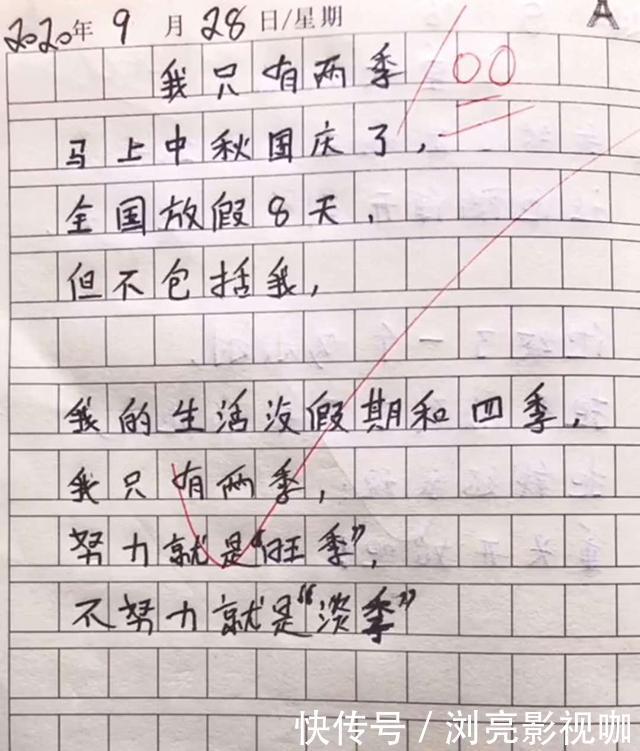 2020年9月28日/星期 A
我只有两季 100
马上中秋国庆了，
全国放假8天，
但不包括我，
我的生活没假期和四季，
我只有两季，
努力就是“旺季”，
不努力就是“淡季”
快传号/浏亮影视咖